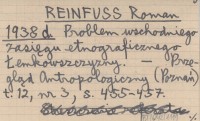 REINFUSS Roman
1938 d. Problem wschodniego
zasięgu etnograficznego
Łemkowszczyzny. — Prze-
gląd Antropologiczny (Poznań)
t. 12, nr 3, s. 455-457.